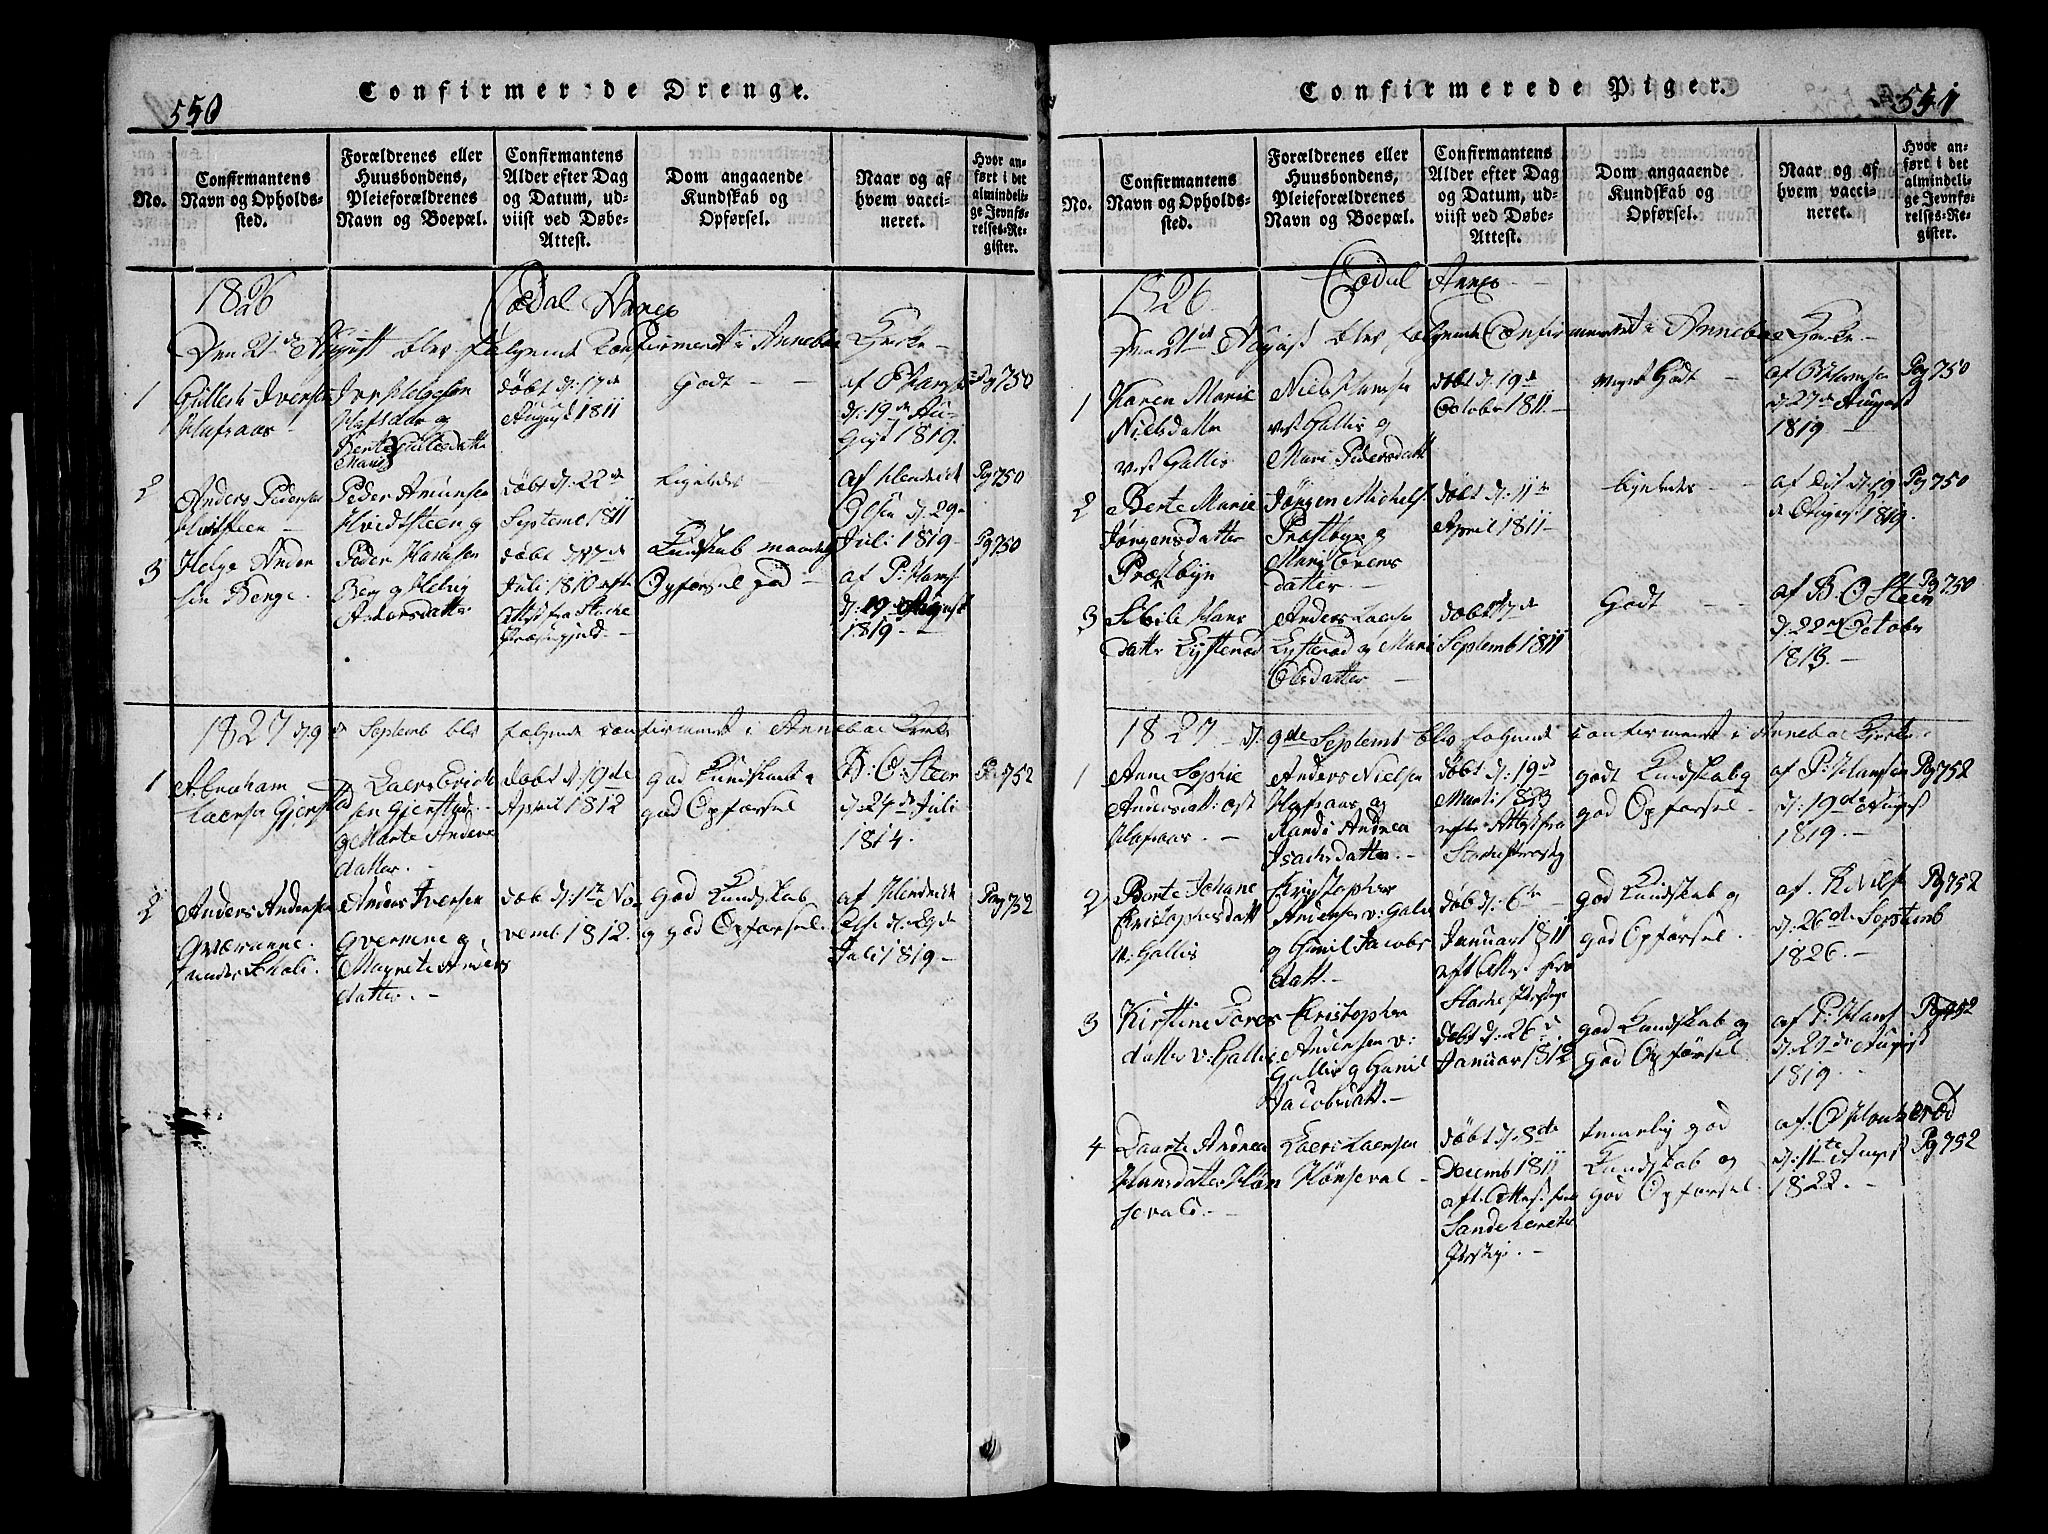 550
Confirmerede Drenge.
No.
Confirmantens
Navn og Opholds-
sted.
Forældrenes eller
Huusbondens,
Pleieforældrenes
Navn og Boepæl.
Confirmantens
Alder efter Dag
og Datum, ud-
viist ved Døbe-
Attest.
Dom angaaende
Kundskab og
Opførsel.
Naar og af
hvem vacci-
neret.
Hvor an-
ført i det
almindeli-
ge Jevnfø-
relses-Re-
gister.
1826
Annex
Den 21de August blev følgende Confirmeret i Annebøe Kirke
1
Iversen
Hafraas
Iver Helgesen
Hafsaas og
Berte
Marie
døbt d: 17de
August 1811
Godt
af P Hansen
d: 19de Au-
gust 1819.
Pg 750
2
Anders Pedersen
Peder Amunsen
Hvidsteen og
døbt d: 22de
Septemb 1811
ligeledes
af Hendrick
Olsen d: 29
Juli 1819
Pg 750
3
Helge Ander
sen Berge.
Peder Hansen
Berg og Helvig
Andersdatter
døbt d 17de
Juli 1810 efter
Attest fra Stocke
Præstegjeld.
Kundskab maadelig
Opførsel god
af P: Hans
d: 19de August
1819
Pg 750
1827 d: 9de Septemb blev følgende confirmeret i Annebøe Kirke
1
Abraham
Laersen Gjerstad
Laers Erick
sen Gjerstad
og Marte Anders
datter.
døbt d: 19de
April 1812
god Kundskab
god Opførsel
B: O: Steen
d: 24de Juli
1814.
Pg 752
2
Anders Andersen
Qværnne.
under Skoli.
Anders Iversen
Qvernene og
Magrete Anders
datter.
døb d: 1te No
vemb. 1812.
god Kundskab
og god Opførsel.
af Hendrick
Olse d: 29de
Juli 1819
Pag 752
551
Confirmerede Piger.
No.
Confirmantens
Navn og Opholds-
sted.
Forældrenes eller
Huusbondens,
Pleieforældrenes
Navn og Boepæl.
Confirmantens
Alder efter Dag
og Datum, ud-
viist ved Døbe-
Attest.
Dom angaaende
Kundskab og
Opførsel.
Naar og af
hvem vacci-
neret.
Hvor an-
ført i det
almindeli-
ge Jevnfø-
relses-Re-
gister.
1826.
Annex
Den 21de August blev følgende Confirmeret i Annebøe Kirke
1
Karen Marie
Nielsdatter
vest Gallis
Niels Hansen
vest Gallis og
Mari Pedersdatt
døbt d: 19de
October 1811.
meget Godt
af P Hansen
d: 27de August
1819
Pag 750
2
Berte Marie
Jørgensdatter
Præstbyn
Jørgen Michels
Præstbyn og
Mari Evens
datter.
døbt d: 11te
April 1811
ligeledes
af dito d: 19
de August 1819.
Pg 750
3
Sibile Hans
datter Lysterød
Anders Laersen
Lysterød og Mari
Olsdatter
døbt 17de
Septemb 1811
Godt
af B. O Steen
d: 22 October
1813.
Pg 750
1827 d: 9de Septemb blev følgende confirmeret i Annebøe Kirke.
1
Anne Sophie
Andersdatt: øst
Hafraas.
Anders Nielsen
Hafraas og
Randi Andrea
Isachsdatter.
døbt d: 19de
Marti
efter Attest fra
godt Kundskab og
god Opførsel.
af P: Hansen
d: 19de August
1819.
Pag 752
2
Berte Johane
Christophersdatt
v: Gallis
Christopher
Andersen v: Gallis
og Gunil Jacobs
datt.
døb d: 6te
Januar 1811
efter Attest fra
god Kundskab og
god Opførsel.
af. K Niels
d: 26de Septemb
1826.
Pg 752
3
Kirstine Tores
datter v: Gallis
Christopher
Andersen v:
Gallis og Gunil
Jacobsdatt.
døbt d: 26de
Januar 1812
god Kundskab og
god Opførsel.
af P: Hans
d: 27de August
1819.
Pg 752
4
Daarte Andrea
Hansdatter Høn
servald.
Laers Laersen
Hønseval
døbt d: 8de
Decemb 1811
efter Attest fra
god
Kundskab og
god Opførsel.
d: 11te August
1822.
Pg 752